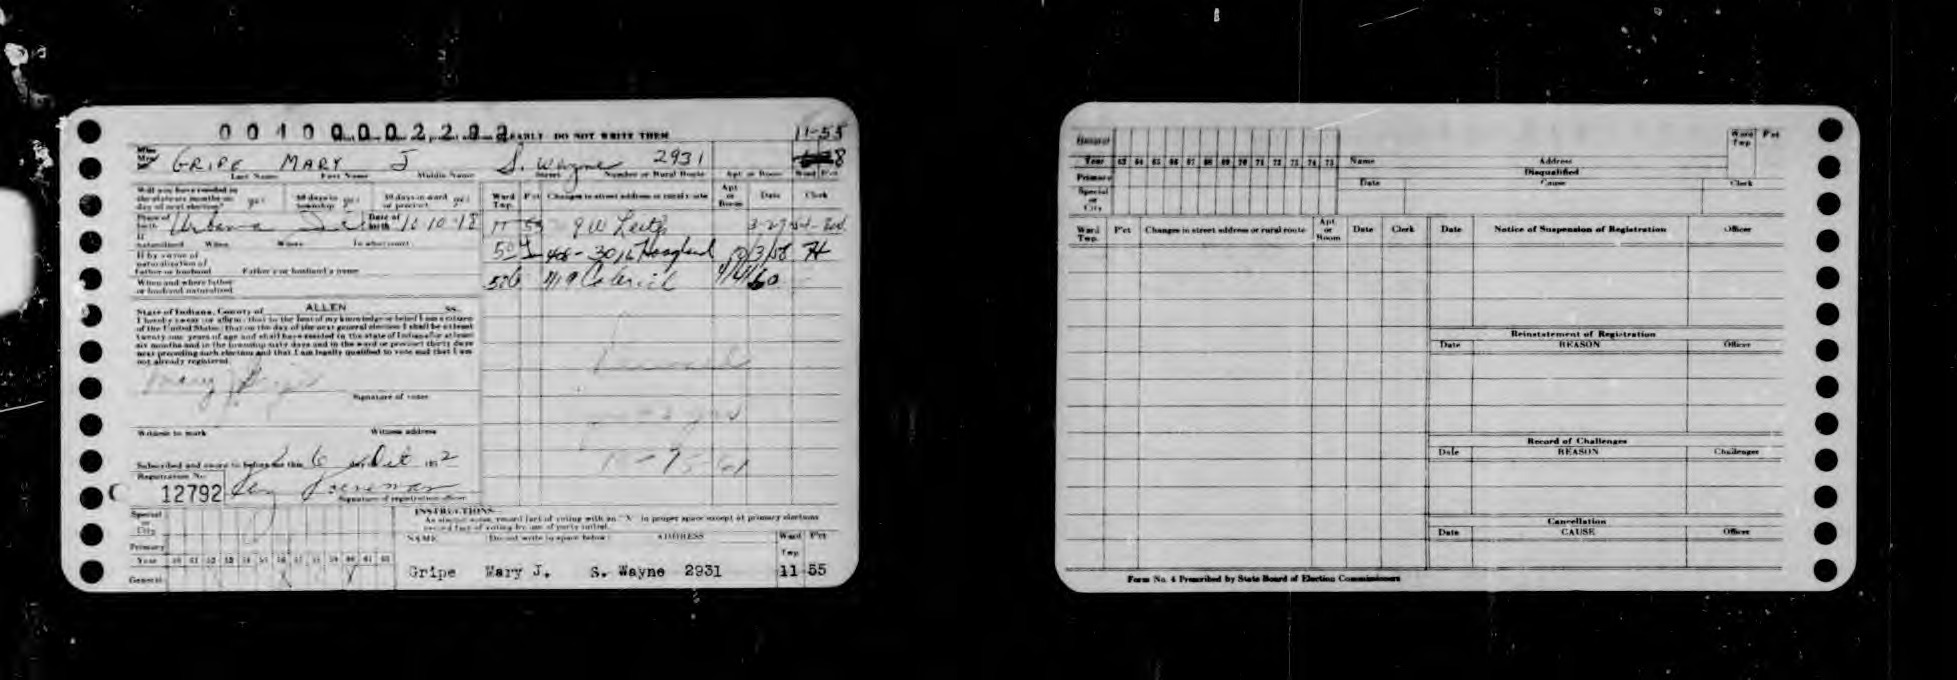 00100002292 EARLY DO NOT WRITE THEM 11-55
Miss
Mrs. GRIPE MARY J S. Wayne 2931
Last Name First Name Middle Name Street Number or Rural Route Apt or Room Ward Pct
Will you have resided in the state six months on day of next election? yes 60 days in township yes 30 days in ward or precinct yes
Ward Twp. Pct Changes in street address or rural route Apt or Room Date Clerk
Place of birth Urbana Ind Date of birth 10 10 18
11 55 9 W Leith 3-27-54
If naturalized When Where In what court
506 3016 Hoagland 10/3/58
If by virtue of naturalization of Father or husband Father's or husband's name
506 419 4/4/60
When and where father or husband naturalized
State of Indiana, County of ALLEN SS.
I hereby swear (or affirm) that to the best of my knowledge or belief I am a citizen
of the United States; that on the day of the next general election I shall be at least
twenty-one years of age and shall have resided in the state of Indiana for at least
six months and in the township sixty days and in the ward or precinct thirty days
next preceding such election and that I am legally qualified to vote and that I am
not already registered.
Mary J Gripe
Signature of voter
Witness to mark Witness address
Subscribed and sworn to before me this 6 day of Oct 1952
Registration No.
12792
Signature of registration officer
INSTRUCTIONS
As elector votes, record fact of voting with an "X" in proper space except at primary elections
record fact of voting by use of party initial.
Special or City
Primary
Year 50 51 52 53 54 55 56 57 58 59 60 61 62
General
NAME (Do not write in space below) ADDRESS Ward Twp Pct
Gripe Mary J. S. Wayne 2931 11 55
General
Year 63 64 65 66 67 68 69 70 71 72 73 74 75 Name Address Ward Twp Pct
Primary Disqualified
Special or City Date Cause Clerk
Ward Twp. Pct Changes in street address or rural route Apt or Room Date Clerk Date Notice of Suspension of Registration Officer
Reinstatement of Registration
Date REASON Officer
Record of Challenges
Date REASON Challenger
Cancellation
Date CAUSE Officer
Form No. 4 Prescribed by State Board of Election Commissioners